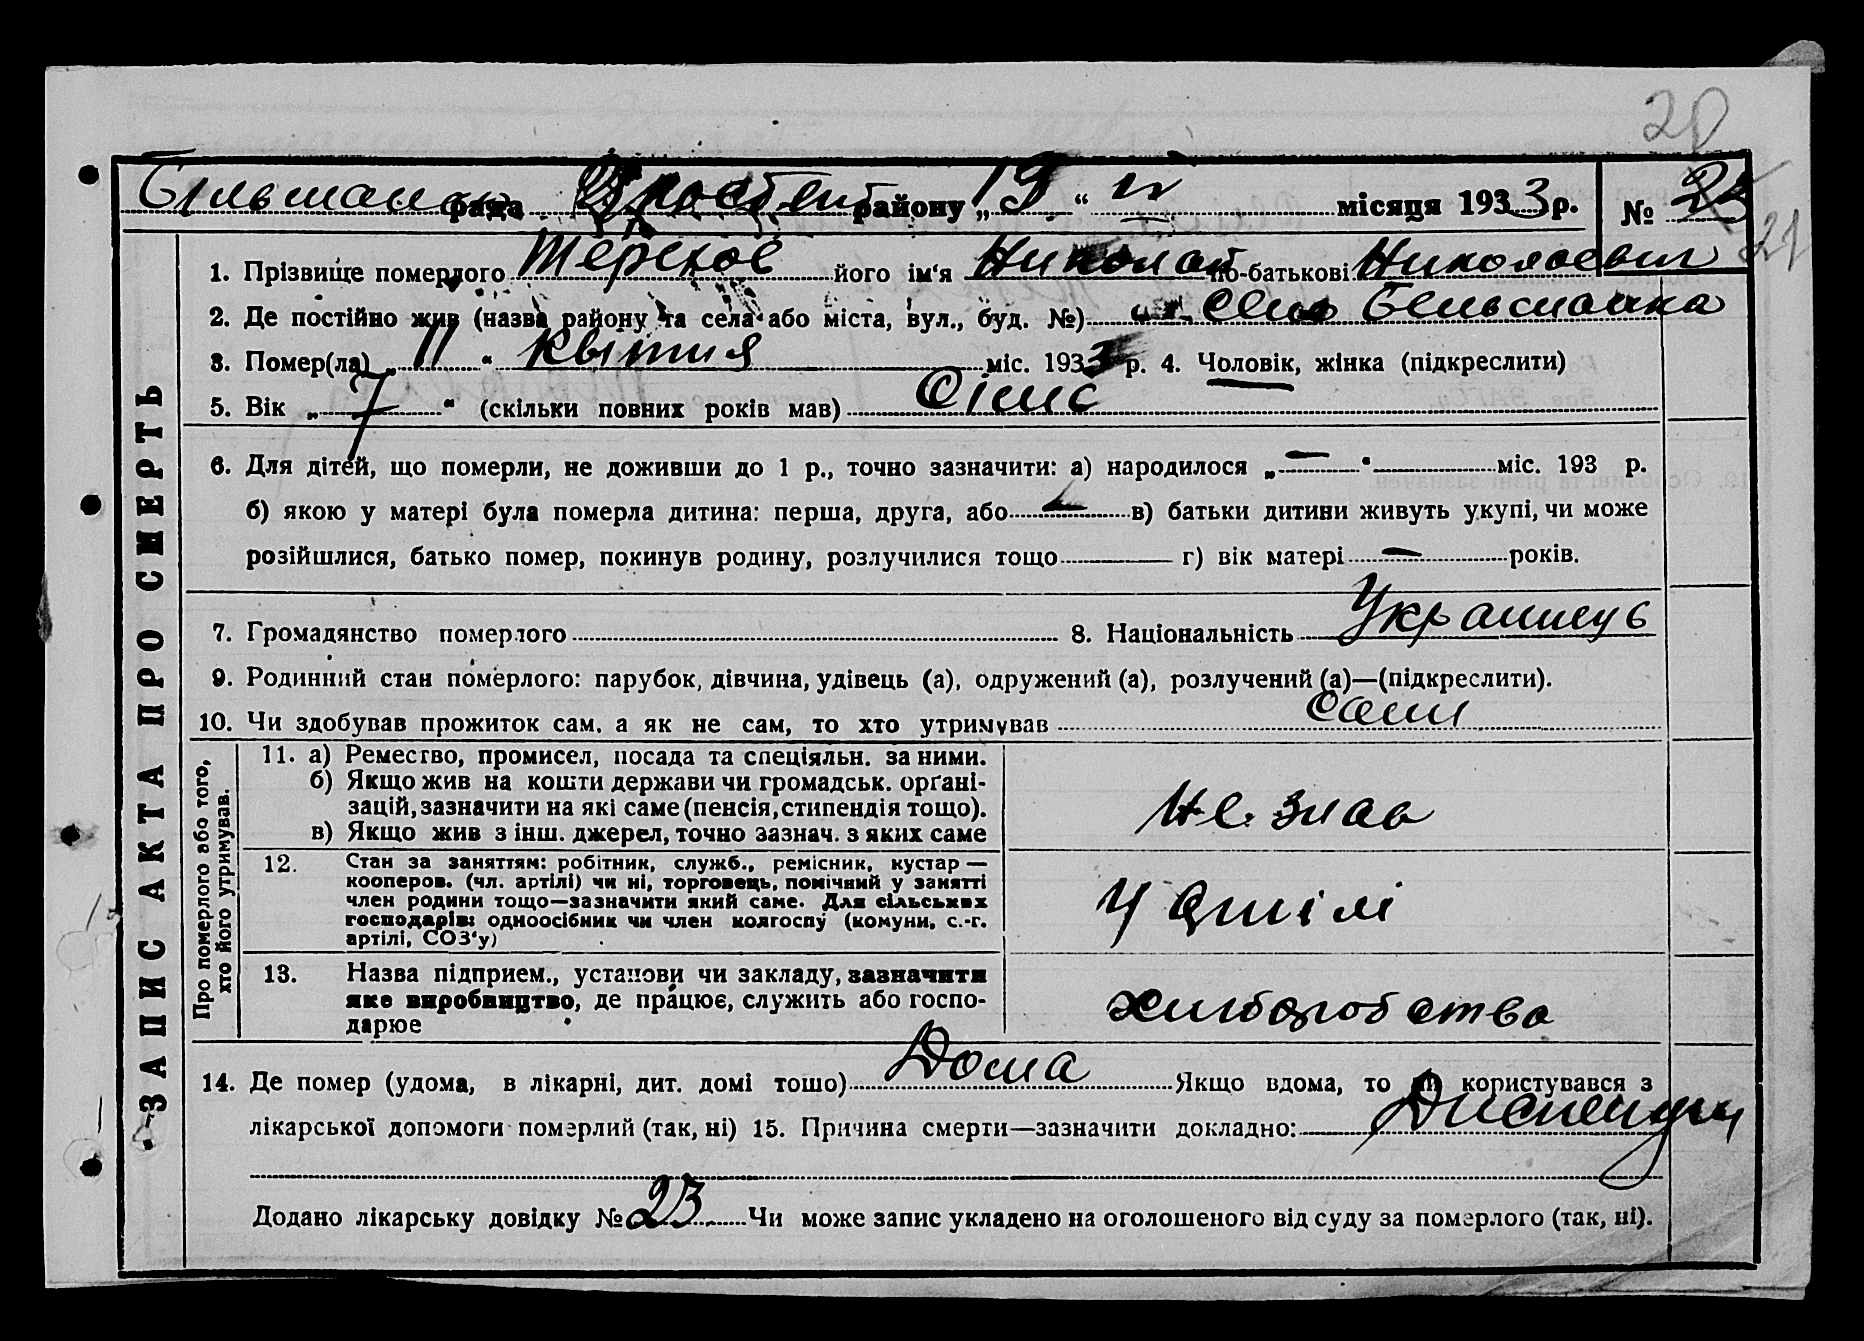 28
Більшанська рада району „19“ IV місяця 1933 р. № 23
21
1. Прізвище померлого Терехов його ім‘я Николай по-батькові Николаевич
2. Де постійно жив (назва району та села або міста, вул., буд. №) село Бельшанка
3. Помер(ла) „11“ Квітня міс. 1933 р. 4. Чоловік, жінка (підкреслити)
5. Вік „7“ (скільки повних років мав) Сім
6. Для дітей, що померли, не доживши до 1 р., точно зазначити: а) народилося „—“ міс. 193 р.
б) якою у матері була померла дитина: перша, друга, або — в) батьки дитини живуть укупі, чи може
розійшлися, батько помер, покинув родину, розлучилися тощо г) вік матері — років.
7. Громадянство померлого 8. Національність
9. Родинний стан померлого: парубок, дівчина, удівець (а), одружений (а), розлучений (а)—(підкреслити).
10. Чи здобував прожиток сам, а як не сам, то хто утримував
ЗАПИС АКТА ПРО СМЕРТЬ
Про померлого або того,
хто його утримував.
11. а) Ремество, промисел, посада та спеціяльн. за ними.
б) Якщо жив на кошти держави чи громадськ. орґані-
зацій, зазначити на які саме (пенсія, стипендія тощо).
в) Якщо жив з інш. джерел, точно зазнач. з яких саме
не знаю
12. Стан за заняттям: робітник, служб., ремісник, кустар —
кооперов. (чл. артілі) чи ні, торговець, помічний у занятті
член родини тощо—зазначити який саме. Для сільських
господарів: одноосібник чи член колгоспу (комуни, с.-г.
артілі, СОЗ‘у)
У Артілі
13. Назва підприєм., установи чи закладу, зазначити
яке виробництво, де працює, служить або госпо-
дарює
хлиборобство
14. Де помер (удома, в лікарні, дит. домі тощо) Дома Якщо вдома, то чи користувався з
лікарської допомоги померлий (так, ні) 15. Причина смерти—зазначити докладно:
Додано лікарську довідку № 23 Чи може запис укладено на оголошеного від суду за померлого (так, ні).